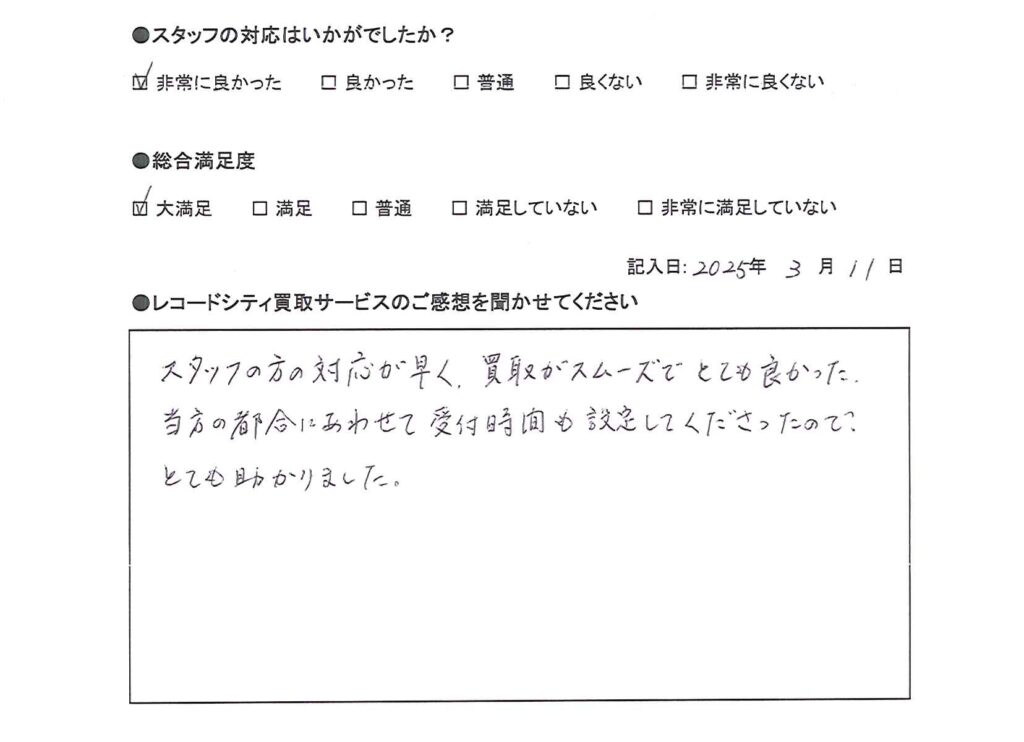 ●スタッフの対応はいかがでしたか？
☑ 非常に良かった □ 良かった □ 普通 □ 良くない □ 非常に良くない
●総合満足度
☑ 大満足 □ 満足 □ 普通 □ 満足していない □ 非常に満足していない
記入日: 2025年 3 月 11 日
●レコードシティ買取サービスのご感想を聞かせてください
スタッフの方の対応が早く、買取がスムーズでとても良かった。
当方の都合にあわせて受付時間も設定してくださったので、
とても助かりました。